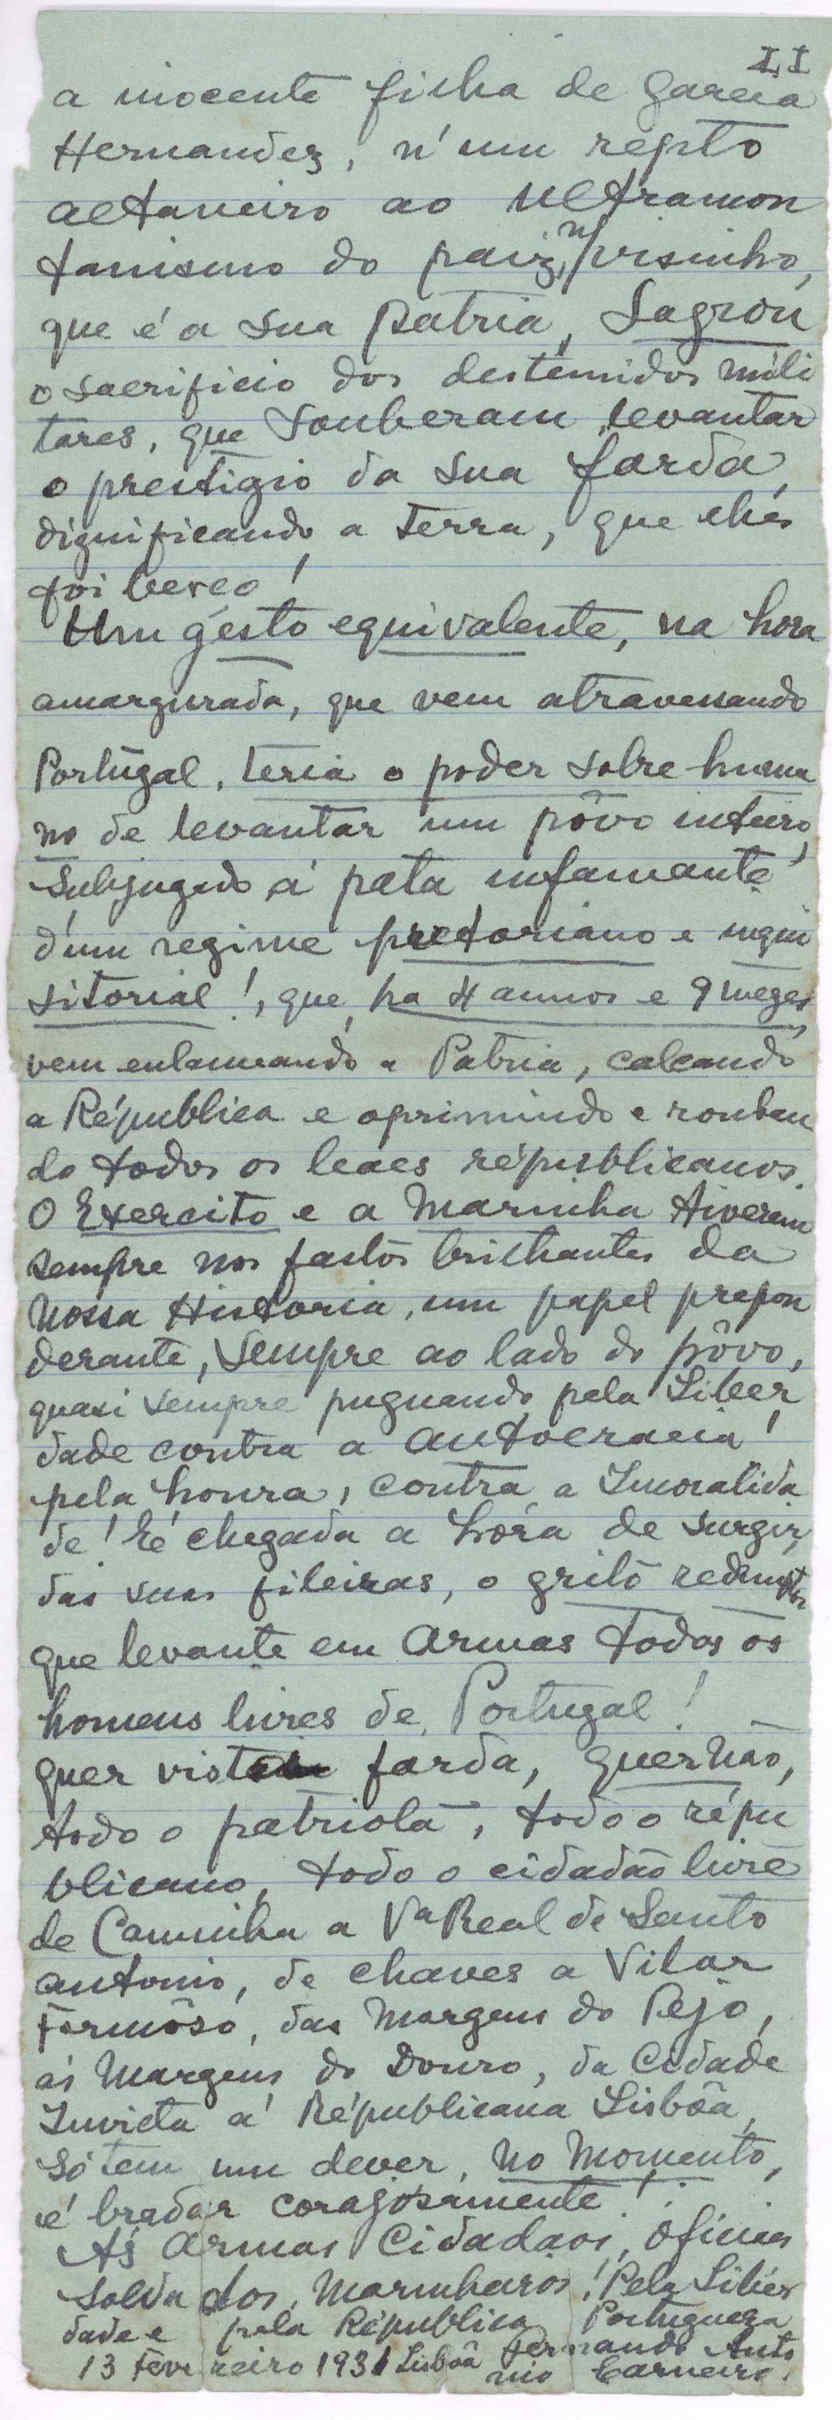 II
a inocente filha de Garcia
Hernandez, n'um repto
altaneiro ao Ultramon
tanismo do paiz, n/ visinho,
que é a sua patria, Sagrou
o sacrificio dos destemidos mili
tares, que souberam levantar
o prestigio da sua farda,
dignificando a terra, que lhes
foi berço!
Um gésto equivalente, na hora
amargurada, que vem atravessando
Portugal, teria o poder sobre-huma
no de levantar um pôvo inteiro,
subjugado á pata infamante
d'um regime pretoriano e inqui
sitorial!, que, ha 4 annos e 9 mezes,
vem enlameando a Patria, calcando
a Républica e oprimindo e rouban
do todos os leaes républicanos.
O Exercito e a Marinha tiveram
sempre nos fastos brilhantes da
Nossa Historia, um papel prepon
derante, sempre ao lado do pôvo,
quasi sempre pugnando pela Liber
dade contra a autocracia!
pela honra, contra a Imoralida
de! É chegada a hóra de surgir,
das suas fileiras, o grito redemptor
que levante em armas todos os
homens livres de Portugal!
quer vista farda, quer não,
todo o patriota, todo o répu
blicano, todo o cidadão livre
de Caminha a Vª Real de Santo
antonio, de chaves a Vilar
Formôso, das Margens do Tejo,
ás Margens do Douro, da Cidade
Invicta á Républicana Lisbôa,
só tem um dever, no momento,
é bradar coragosamente!:
Ás armas Cidadaos, oficiaes
Soldados, Marinheiros! Pela Liber
dade e pela Républica Portugueza
13 Fevereiro 1931 Lisbôa Fernando Anto
nio Carneiro.